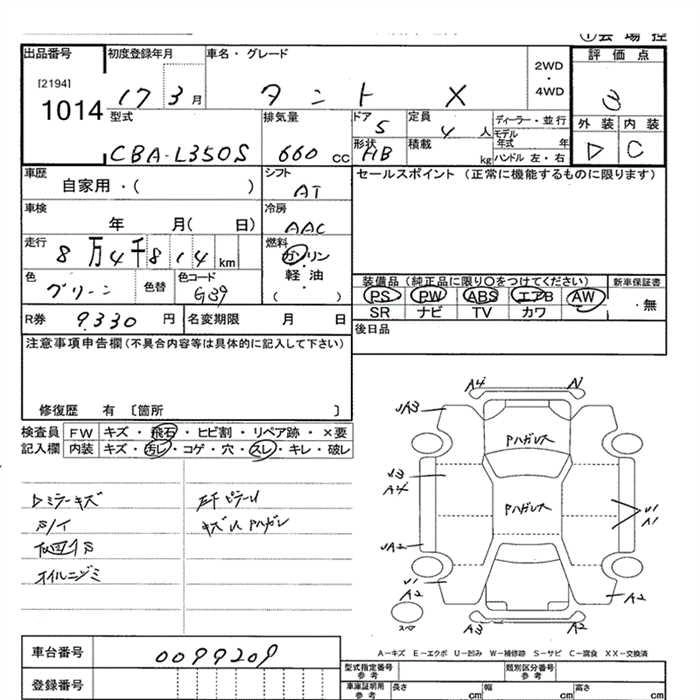 出品番号 初度登録年月 車名・グレード 2WD ・ 4WD 評価点
[2194]
1014
17 3月 タント X
外装 内装
D C
型式 排気量 ドア 5 定員 4人 ディーラー・並行
CBA-L350S 660 cc 形状 HB 積載 kg モデル年式 年
ハンドル 左・右
車歴 シフト セールスポイント (正常に機能するものに限ります)
自家用・( ) AT
車検 冷房
年 月( 日) AAC
走行 燃料
8万4千814km ガソリン
軽油
( )
色 色替 色コード
グリーン G39
装備品 (純正品に限り○をつけてください) 新車保証書
PS PW ABS エアB AW ・無
SR ナビ TV カワ
R券 9,330円 名変期限 月 日
後日品
注意事項申告欄(不具合内容等は具体的に記入して下さい)
修復歴 有 〔箇所 〕
検査員 FW キズ・飛石・ヒビ割・リペア跡・×要
記入欄 内装 キズ・汚レ・コゲ・穴・スレ・キレ・破レ
Dミラーキズ
オイルニジミ
A4
UA3
Pハガレ大
Pハガレ大
A4
U1
A1
UA2
U1
A2
A2
A3 A2
スペア
A-キズ E-エクボ U-凹み W-補修跡 S-サビ C-腐食 XX-交換済
車台番号 0099209
登録番号
型式指定番号 参考 類別区分番号 参考
車庫証明用 参考 長さ cm 幅 cm 高さ cm